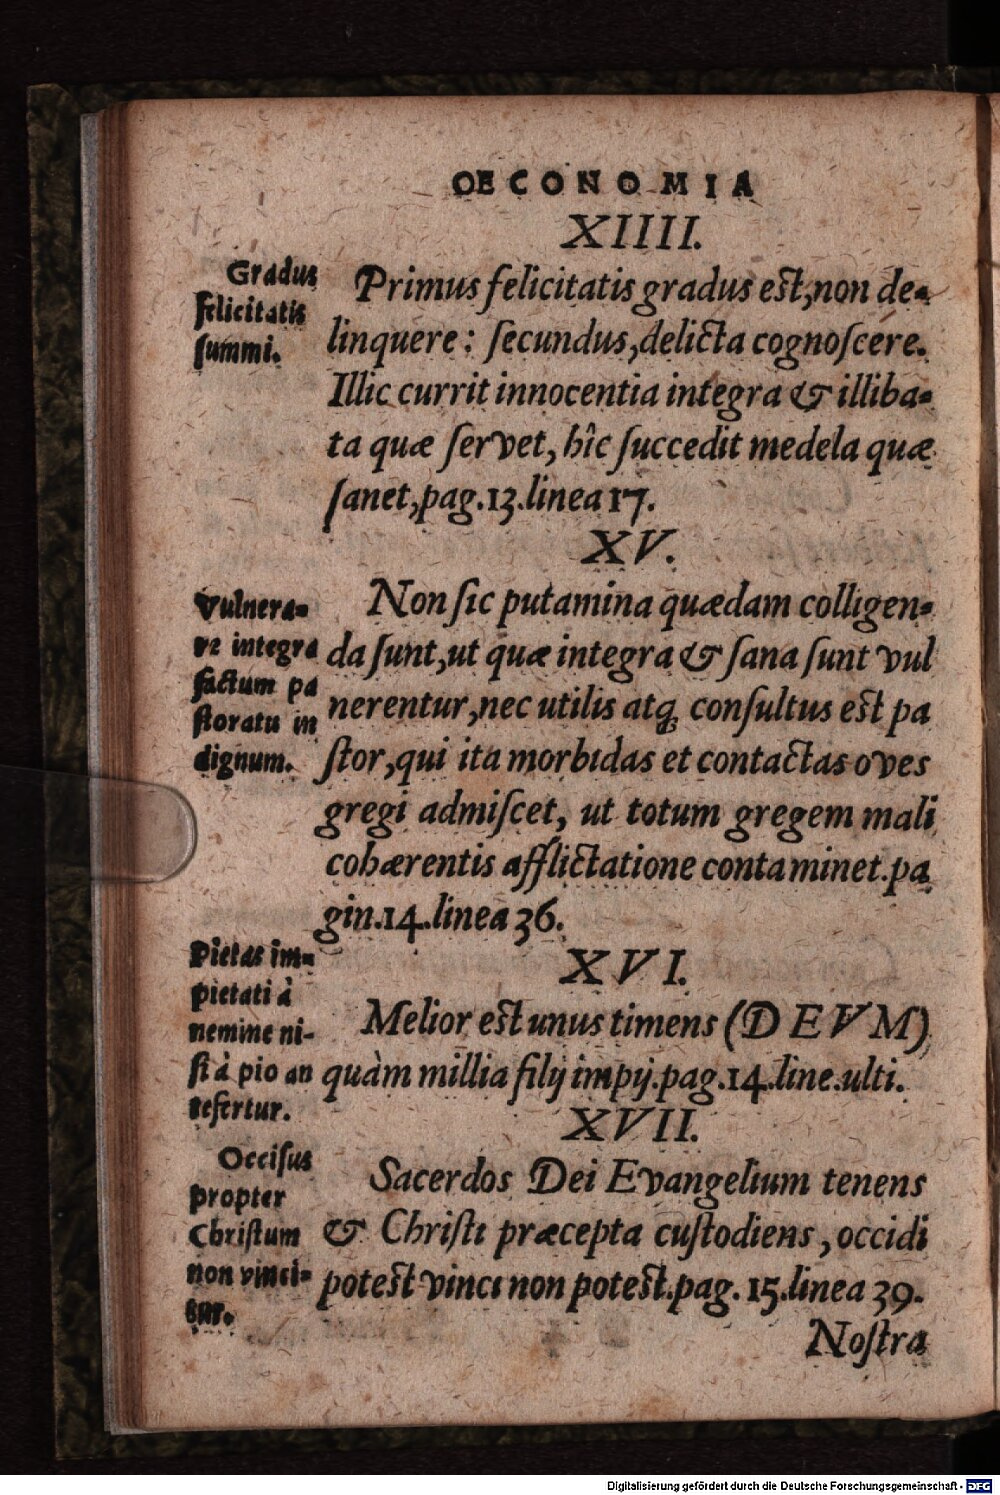 OECONOMIA
XIIII.
Gradus
felicitatis
summi.
Primus felicitatis gradus est, non de-
linquere: secundus, delicta cognoscere.
Illic currit innocentia integra & illiba-
ta quæ servet, hîc succedit medela quæ
sanet, pag. 13. linea 17.
XV.
Vulnera-
re integra
factum pa
storatu in
dignum.
Non sic putamina quædam colligen-
da sunt, ut quæ integra & sana sunt vul
nerentur, nec utilis atq; consultus est pa
stor, qui ita morbidas et contactas oves
gregi admiscet, ut totum gregem mali
cohærentis afflictatione contaminet. pa
gin. 14. linea 36.
XVI.
Pietas im-
pietati à
nemine ni-
si à pio an
tefertur.
Melior est unus timens (DEVM)
quàm millia filij impij. pag. 14. line. ulti.
XVII.
Occisus
propter
Christum
non vinci-
tur.
Sacerdos Dei Evangelium tenens
& Christi præcepta custodiens, occidi
potest vinci non potest. pag. 15. linea 39.
Nostra
Digitalisierung gefördert durch die Deutsche Forschungsgemeinschaft - DFG